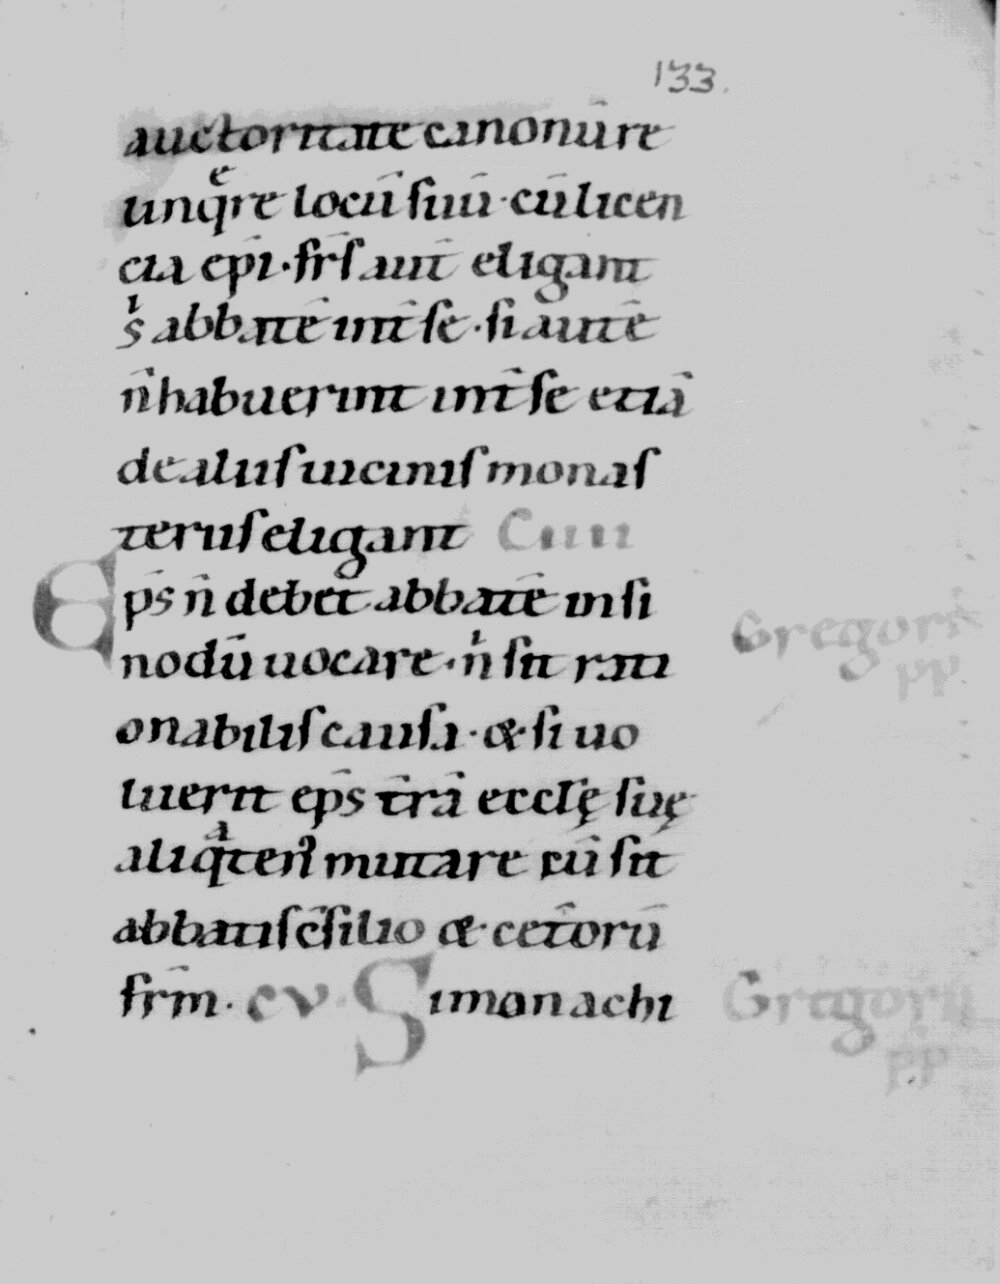 133.
auctoritate canonū re
linq̄ͤre locū suū · cū licen
cia ep̄i · fr̄s aut̄ eligant
sⁱ abbatē int̄ se · si autē
n̄ habuerint int̄ se etiā
de aliis uicinis monas
teriis eligant Ciiii
Ep̄s n̄ debet abbatē in si
nodū uocare · nⁱ sit rati
onabilis causa · & si uo
luerit ep̄s t̄rā eccl̄ę suę
aliqᵃter̄ mutare cū sit
abbatis c̄silio & · cet̄orū
fr̄m · cv · Si monachi
Gregorii
pp
Gregorii
pp